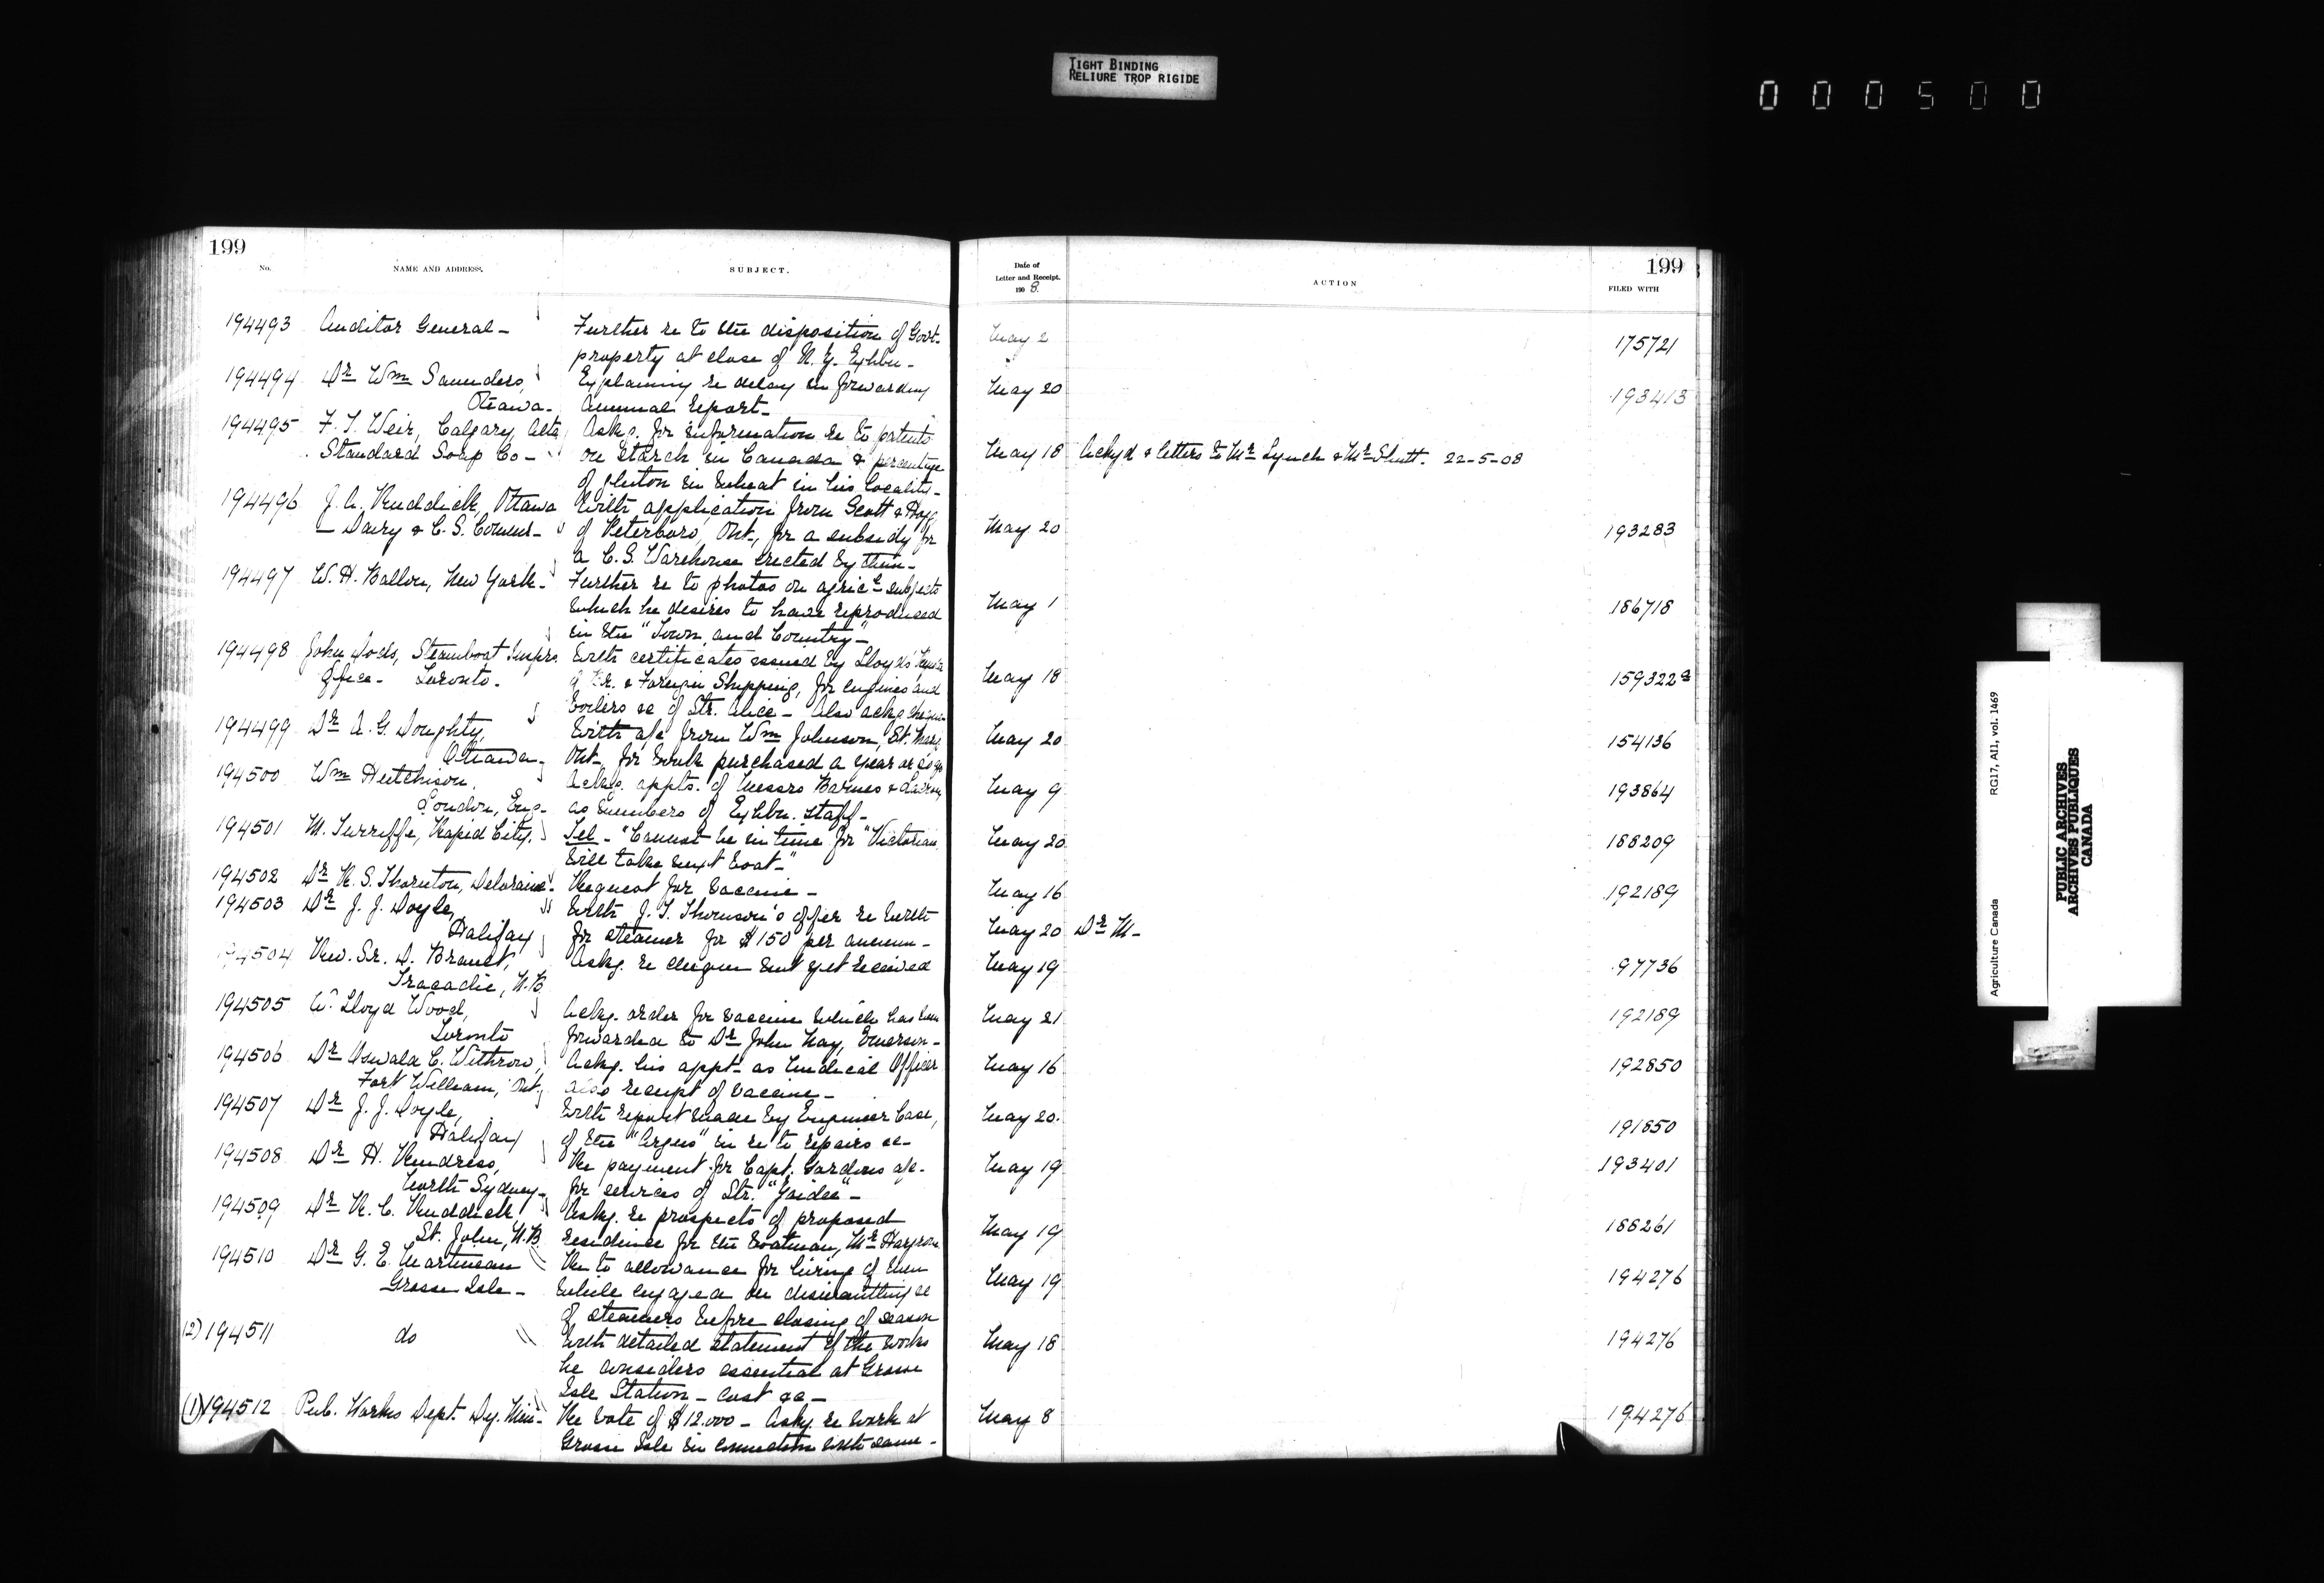 TIGHT BINDING
RELIURE TROP RIGIDE
000500
199
No.
NAME AND ADDRESS.
SUBJECT.
194493 Auditor General - Further re to the disposition of Govt.
property at close of N.Z. Exhbn -
194494 Dr Wm Saunders, Explaining re delay in forwarding
Ottawa - Annual Report -
194495 F. T. Weir, Calgary, Alta Asks. for information re to patents
Standard Soap Co - on Starch in Canada & percentage
of gluton in wheat in his locality -
194496 J. A. Ruddick, Ottawa With application from Scott &
- Dairy & C. S. Commr - of Peterboro, Ont., for a subsidy for
a C. S. Warehouse erected by them -
194497 W. H. Ballou, New York - Further re to photos on agricl subjects
which he desires to have reproduced
in the "Town and Country" -
194498 John Dods, Steamboat Inspn. With certificates issued by Lloyds'
Office - Toronto - of Br. & Foreign Shipping, for engines and
boilers &c of Str. Alice - Also ackg cheque
194499 Dr A. G. Doughty, With a/c from Wm Johnson, St. Marys
Ottawa - Ont - for work purchased a year or so ago
194500 Wm Hutchison, Ackg. appts. of Messrs Barnes &
London, Eng - as members of Exhbn. staff -
194501 M. Turriffe, Rapid City. Tel - "Cannot be in time for "Victorian
will take next boat -"
194502 Dr R. S. Thornton, Deloraine - Request for vaccine -
194503 Dr J. J. Doyle, With J. T. Thomson's offer re berth
Halifax for steamer for $150 per annum -
194504 Rev. Sr. D. Brault, Askg. re cheque not yet received
Tracadie, N.B.
194505 W. Lloyd Wood, Ackg. order for vaccine which has been
Toronto forwarded to Dr John Hay, Emerson -
194506 Dr Oswald C. Withrow, Ackg. his appt - as Medical Officer
Fort William, Ont, also receipt of vaccine -
194507 Dr J. J. Doyle, With report made by Engineer Case,
Halifax of the "Argus" in re to repairs &c -
194508 Dr H. Rindress, Re payment for Capt. Gardens a/c -
North Sydney - for services of Str. "Gaidee" -
194509 Dr R. C. Ruddick Askg. re prospects of proposed
St. John, N.B. residence for the boatman, Mr Hargrove
194510 Dr G. E. Martineau Re to allowance for hiring of men
Grosse Isle - while engaged on dismantling &c
of steamers before closing of season
(2) 194511 do With detailed statement of the works
he considers essential at Grosse
Isle Station - cost &c -
(1) 194512 Pub. Works Dept. Dy. Min - Re vote of $12.000 - Askg. re work at
Grosse Isle in connection with same -
Date of
Letter and Receipt.
1908.
ACTION
199
FILED WITH
May 2 175721
May 20 193413
May 18 Ackgd & letters to Mr Lynch & Mr Shutt. 22-5-08
May 20 193283
May 1 186718
May 18 159322a
May 20 154136
May 9 193864
May 20 188209
May 16 192189
May 20 Dr M -
May 19 97736
May 21 192189
May 16 192850
May 20. 191850
May 19 193401
May 19 188261
May 19 194276
May 18 194276
May 8 194276
Agriculture Canada RG17, AI1, vol. 1469
PUBLIC ARCHIVES
ARCHIVES PUBLIQUES
CANADA